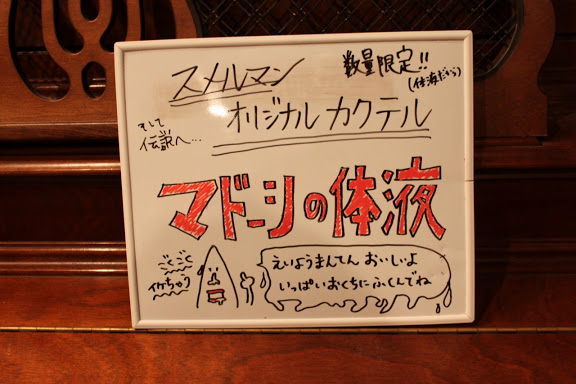 スメルマン
数量限定!!
(体液だから)
オリジナルカクテル
そして
伝説へ…
マドーシの体液
ごくごく
イケちゃう
えいようまんてん おいしいよ
いっぱいおくちにふくんでね